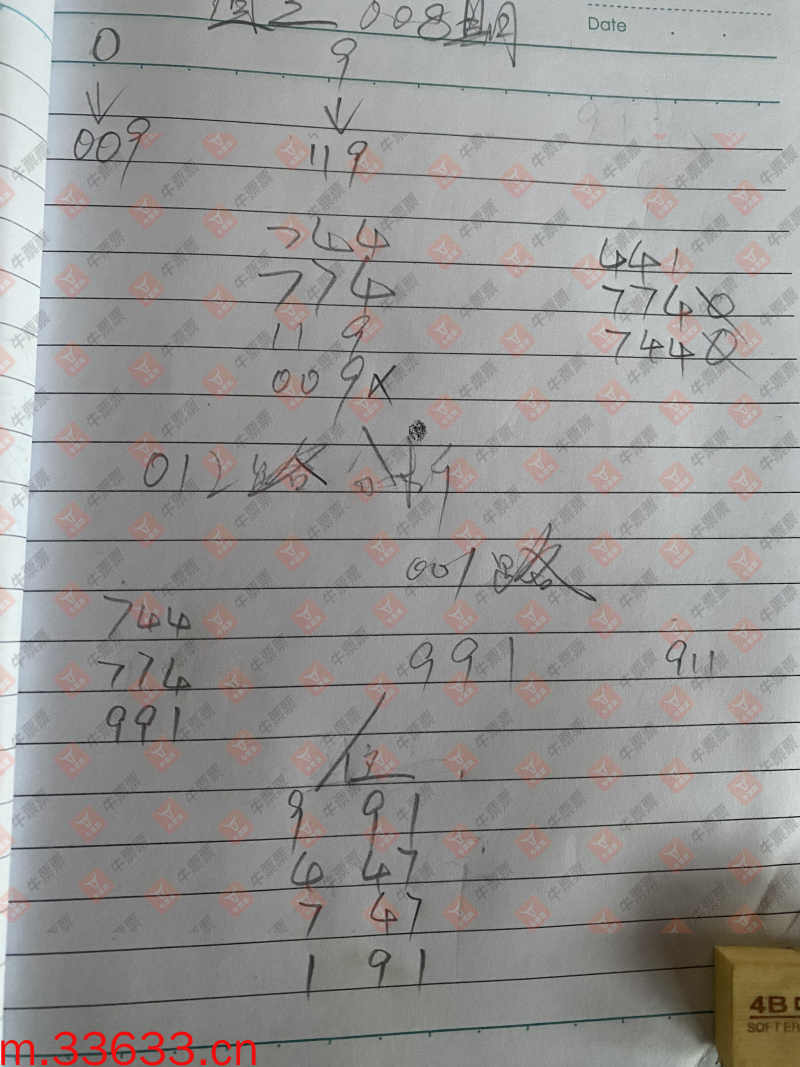 008期
Date
0 9
009 119
744
441
774
7740
119
7440
009x
012路
001路
744
774
991 911
991
位
9 91
4 47
7 47
1 91
牛票票
4B
SOFT ER
m.33633.cn